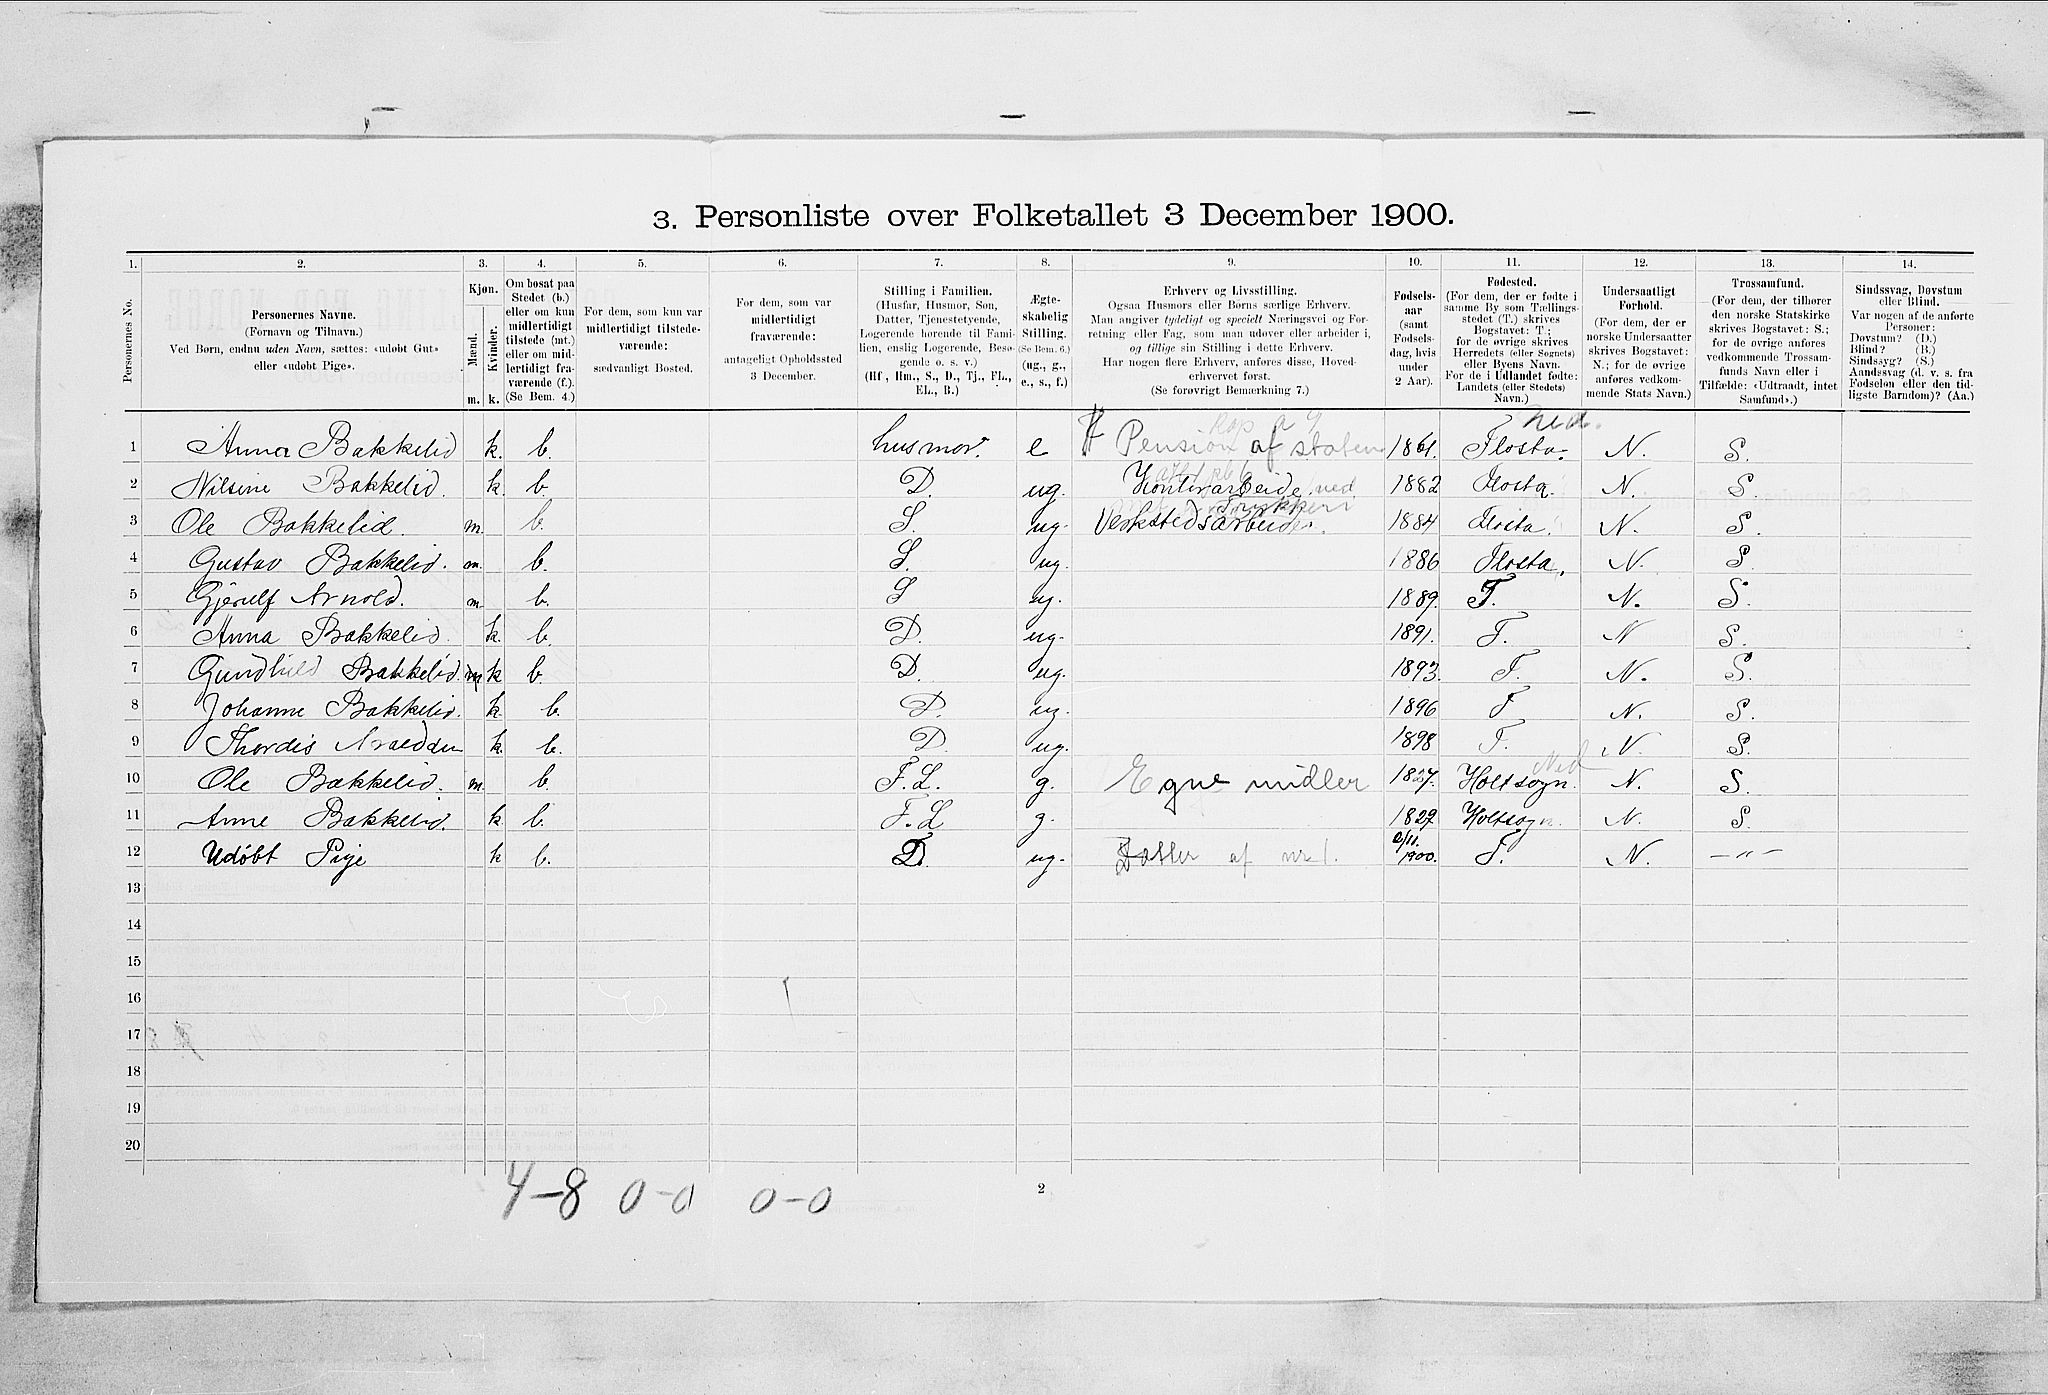 3. Personliste over Folketallet 3 December 1900.
1. 2. 3. 4. 5. 6. 7. 8. 9. 10. 11. 12. 13. 14.
Personernes No.
Personernes Navne.
(Fornavn og Tilnavn.)
Ved Børn, endnu uden Navn, sættes: «udøbt Gut»
eller «udøbt Pige».
Kjøn.
Mænd.
Kvinder.
m. k.
Om bosat paa
Stedet (b.)
eller om kun
midlertidigt
tilstede (mt.)
eller om mid-
lertidigt fra-
værende (f.).
(Se Bem. 4.)
For dem, som kun var
midlertidigt tilstede-
værende:
sædvanligt Bosted.
For dem, som var
midlertidigt
fraværende:
antageligt Opholdssted
3 December.
Stilling i Familien.
(Husfar, Husmor, Søn,
Datter, Tjenestetyende,
Logerende hørende til Fami-
lien, enslig Logerende, Besø-
gende o. s. v.)
(Hf., Hm., S., D., Tj., FL.,
EL., B.)
Ægte-
skabelig
Stilling.
(Se Bem. 6.)
(ug., g.,
e., s., f.)
Erhverv og Livsstilling.
Ogsaa Husmors eller Børns særlige Erhverv.
Man angiver tydeligt og specielt Næringsvei og For-
retning eller Fag, som man udøver eller arbeider i,
og tillige sin Stilling i dette Erhverv.
Har nogen flere Erhverv, anføres disse, Hoved-
erhvervet først.
(Se forøvrigt Bemærkning 7.)
Fødsels-
aar
(samt
Fødsels-
dag, hvis
under
2 Aar).
Fødested.
(For dem, der er fødte i
samme By som Tællings-
stedet (T.) skrives
Bogstavet: T.;
for de øvrige skrives
Herredets (eller Sognets)
eller Byens Navn.
For de i Udlandet fødte:
Landets (eller Stedets)
Navn.)
Undersaatligt
Forhold.
(For dem, der er
norske Undersaatter
skrives Bogstavet:
N.; for de øvrige
anføres vedkom-
mende Stats Navn.)
Trossamfund.
(For dem, der tilhører
den norske Statskirke
skrives Bogstavet: S.;
for de øvrige anføres
vedkommende Trossam-
funds Navn eller i
Tilfælde: «Udtraadt, intet
Samfund».)
Sindssvag, Døvstum
eller Blind.
Var nogen af de anførte
Personer:
Døvstum? (D.)
Blind? (B.)
Sindssyg? (S.)
Aandssvag (d. v. s. fra
Fødselen eller den tid-
ligste Barndom)? (Aa.)
1 Anna Bakkelid k. b. husmor. e Pension af staten 1861. Flosta. N. S.
2 Nilsine Bakkelid. k. b. D. ug. Kontorarbeide ved 1882 Flosta. N. S.
Trykkeri
3 Ole Bakkelid. m. b. S. ug. Verkstedsarbeider. 1884 Flosta. N. S.
4 Gustav Bakkelid. m. b. S. ug. 1886 Flosta. N. S
5 Gjerulf Arnold. m. b. S ug. 1889. T. N. S.
6 Anna Bakkelid. k. b. D. ug. 1891. T. N S.
7 Gundhild Bakkelid. k b. D. ug. 1893. T. N. S.
8 Johanne Bakkelid. k. b. D. ug. 1896 T N. S.
9 Thordis k. b. D. ug. 1898 T. N. S.
Ned
10 Ole Bakkelid. m. b. F.L. g. Egne midler 1827. Holtsogn. N. S.
11 Anne Bakkelid. k b. F.L g. 1829 Holtsogn. N. S.
12 Udøbt Pige k b. D. ug. Datter af nr 1. 2/11. 1900. T. N. —"—
13
14
15
16
17
18
19
20
4–8 0–0 0–0
2